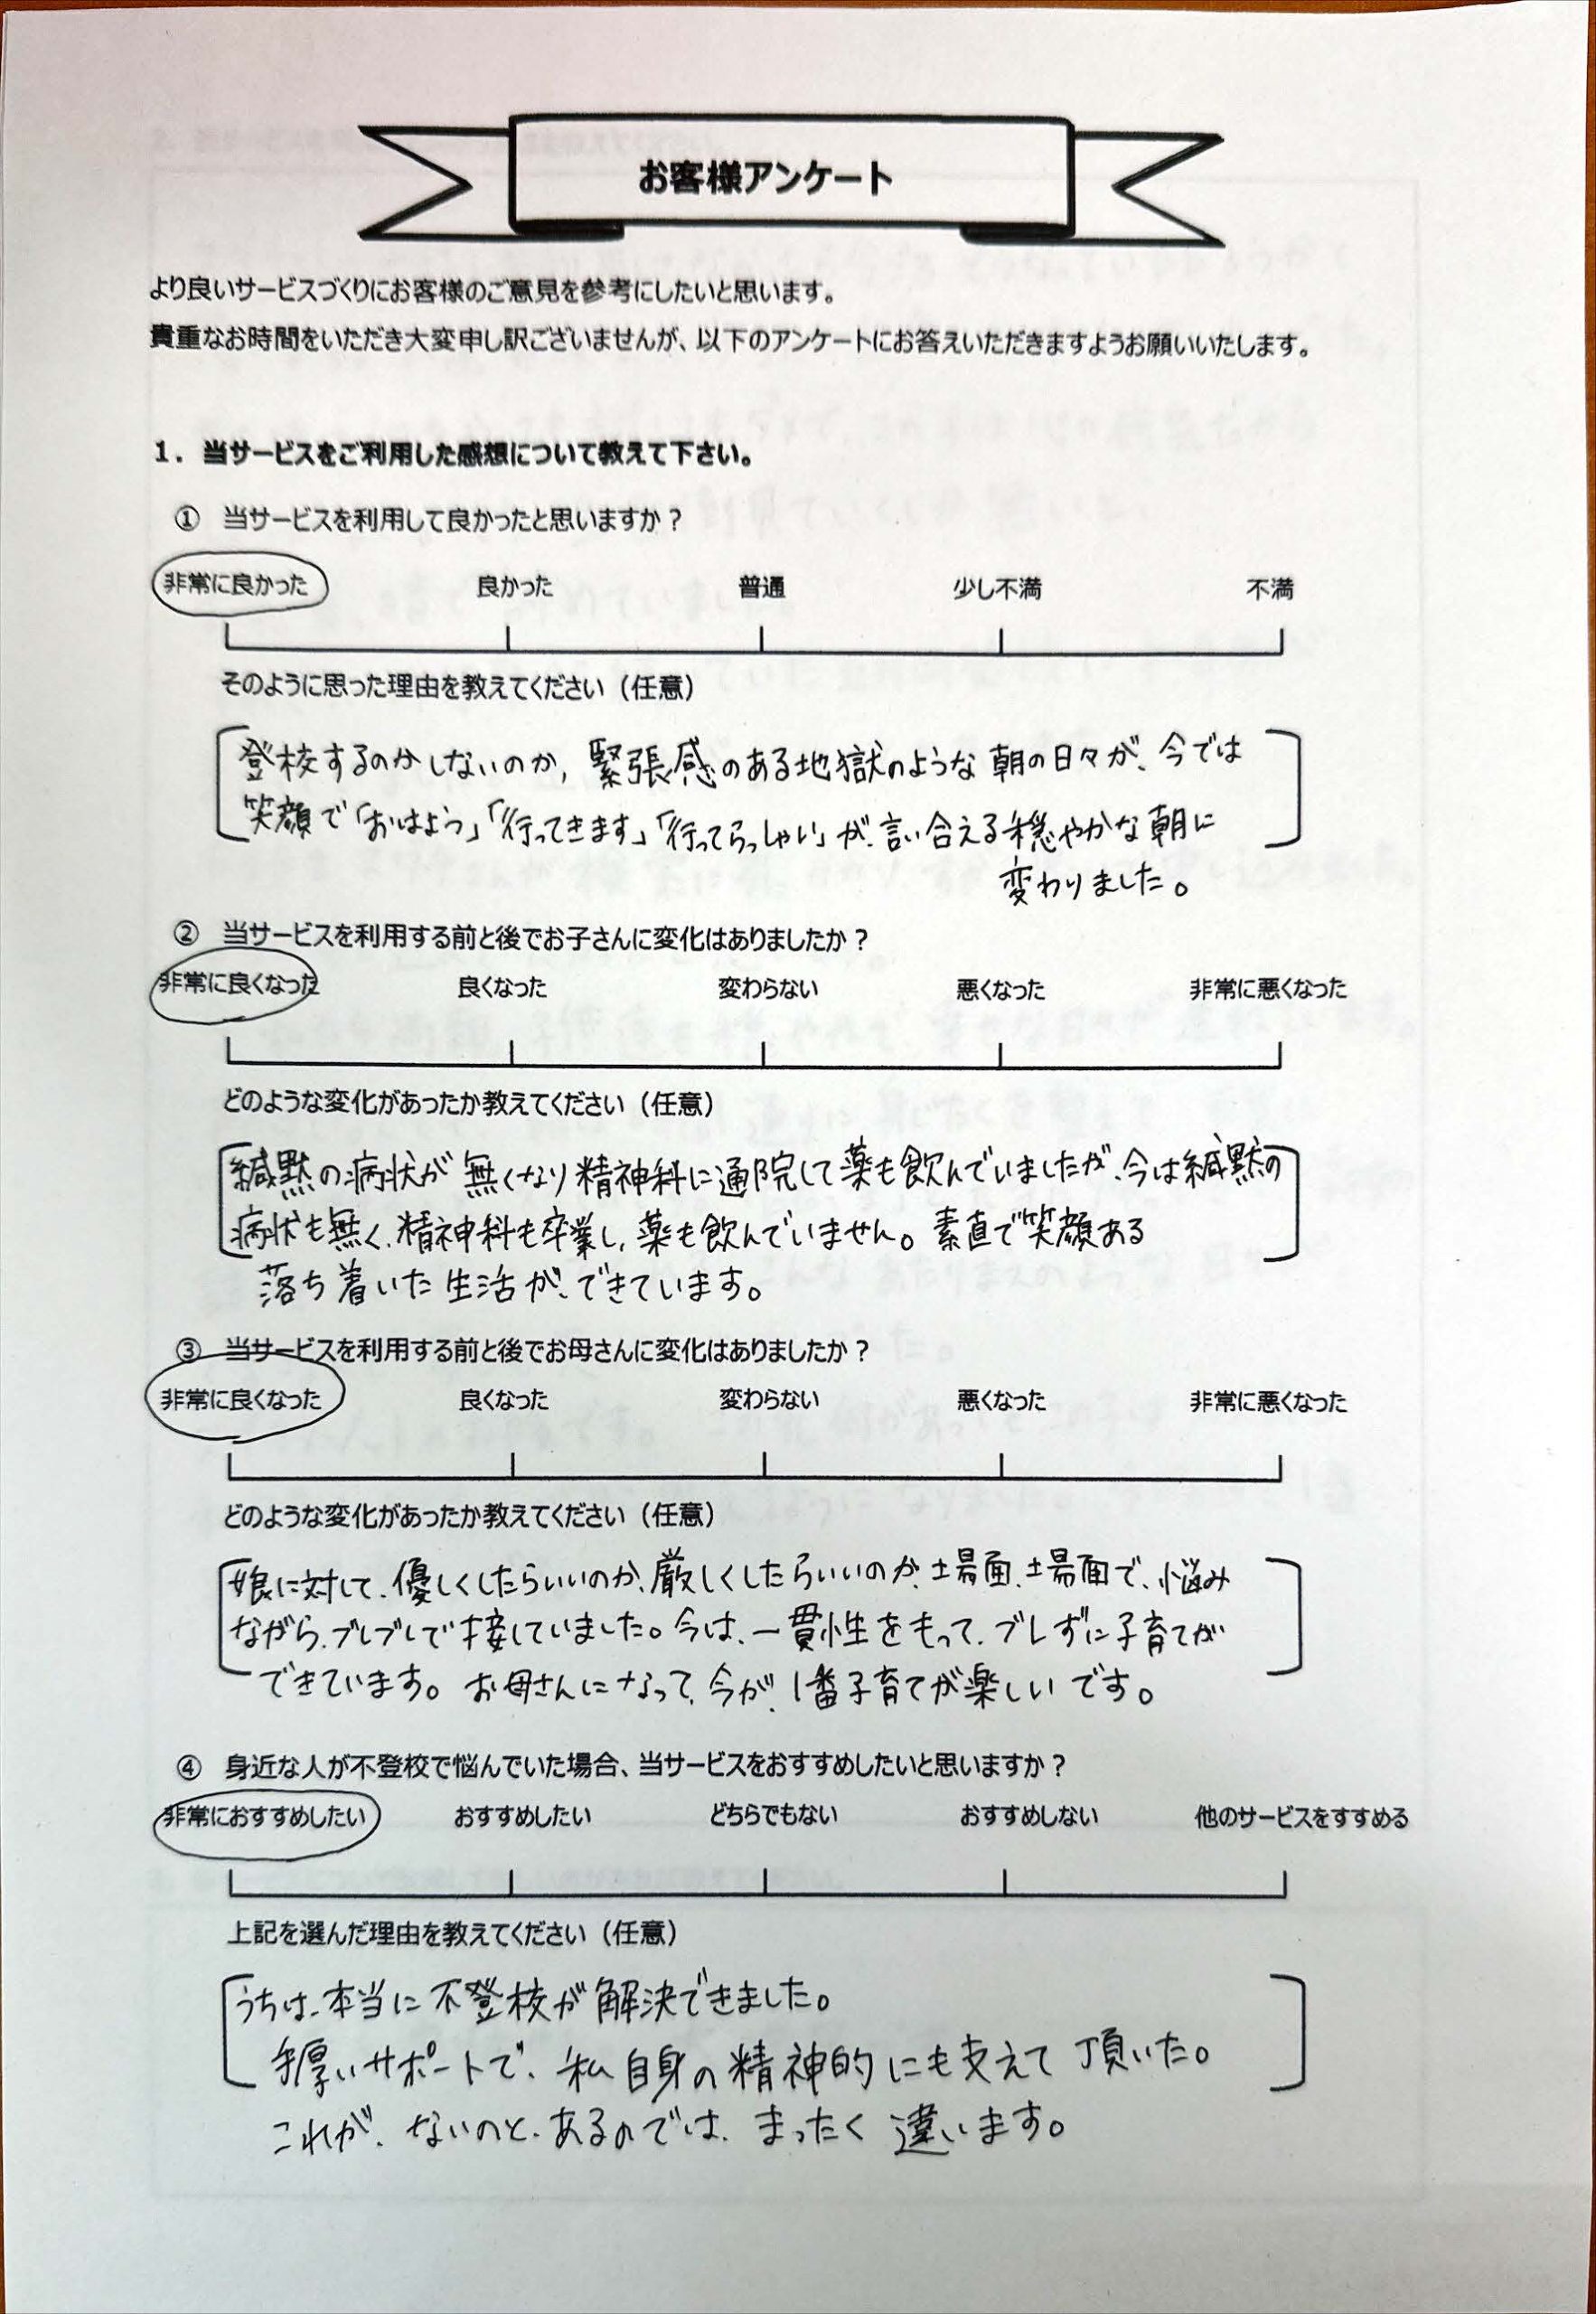 お客様アンケート
より良いサービスづくりにお客様のご意見を参考にしたいと思います。
貴重なお時間をいただき大変申し訳ございませんが、以下のアンケートにお答えいただきますようお願いいたします。
1．当サービスをご利用した感想について教えて下さい。
① 当サービスを利用して良かったと思いますか？
非常に良かった 良かった 普通 少し不満 不満
そのように思った理由を教えてください（任意）
登校するのかしないのか、緊張感のある地獄のような朝の日々が、今では
笑顔で「おはよう」「行ってきます」「行ってらっしゃい」が、言い合える穏やかな朝に
変わりました。
② 当サービスを利用する前と後でお子さんに変化はありましたか？
非常に良くなった 良くなった 変わらない 悪くなった 非常に悪くなった
どのような変化があったか教えてください（任意）
緘黙の病状が無くなり精神科に通院して薬も飲んでいましたが、今は緘黙の
病状も無く、精神科も卒業し、薬も飲んでいません。素直で笑顔ある
落ち着いた生活が、できています。
③ 当サービスを利用する前と後でお母さんに変化はありましたか？
非常に良くなった 良くなった 変わらない 悪くなった 非常に悪くなった
どのような変化があったか教えてください（任意）
娘に対して、優しくしたらいいのか、厳しくしたらいいのか、場面、場面で、悩み
ながら、ブレブレで接していました。今は、一貫性をもって、ブレずに子育てが
できています。お母さんになって、今が、1番子育てが楽しいです。
④ 身近な人が不登校で悩んでいた場合、当サービスをおすすめしたいと思いますか？
非常におすすめしたい おすすめしたい どちらでもない おすすめしない 他のサービスをすすめる
上記を選んだ理由を教えてください（任意）
うちは、本当に不登校が解決できました。
手厚いサポートで、私自身の精神的にも支えて頂いた。
これが、ないのと、あるのでは、まったく違います。